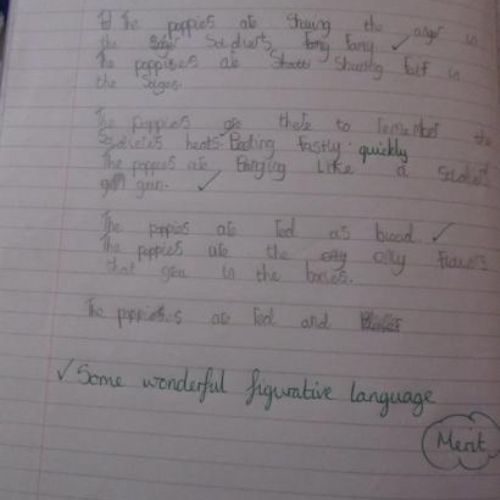 The poppies are Shuing the anger in
the Soldiers fang ✓
The poppises are Shuing fait in
the Solges.
The Poppies are there to remember the
Soldieres hearts Beating fastly quickly
The poppies are Banging Like a Soldier
gun. ✓
The poppies are red as blood. ✓
The poppies are the only flowers
that grow in the bodies.
The poppies are red and
✓ Some wonderful figurative language
Merit